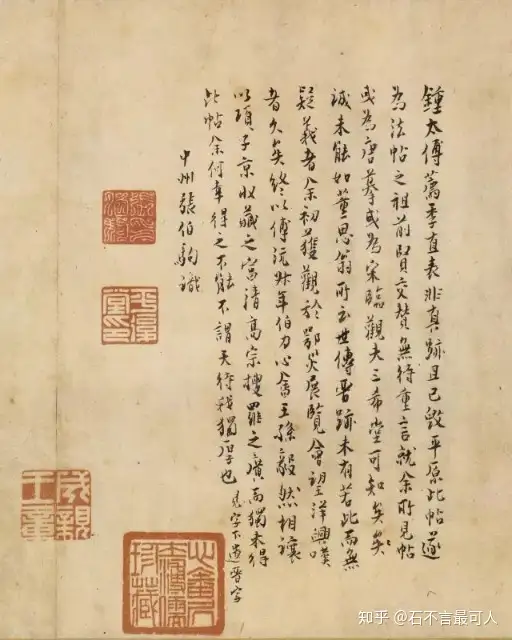 鍾太傅薦季直表非真跡且已毀平原此帖遂
為法帖之祖前賢交贊無待重言就余所見帖
或為唐摹或為宋臨觀夫三希堂可知矣矣
誠未能如董思翁所云世傳晉跡未有若此而無
疑義者余初獲觀於鄂災展覽會望洋興嘆
者久矣終以傅沅叔年伯力心畬王孫毅然相讓
以項子京收藏之富清高宗搜羅之廣而獨未得
此帖余何幸得之不能不謂天待我獨厚也 見字下遺晉字
中州張伯駒識
平復堂印
成親王章
珍藏
知乎 @石不言最可人